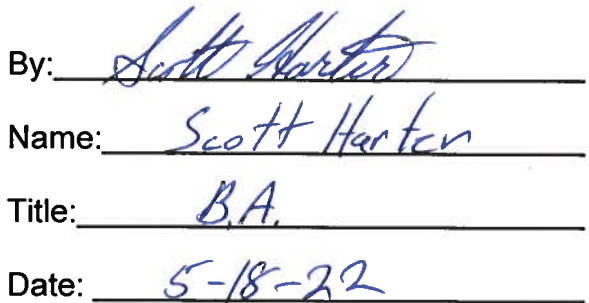 By: Scott Harter
Name: Scott Harter
Title: B.A.
Date: 5-18-22